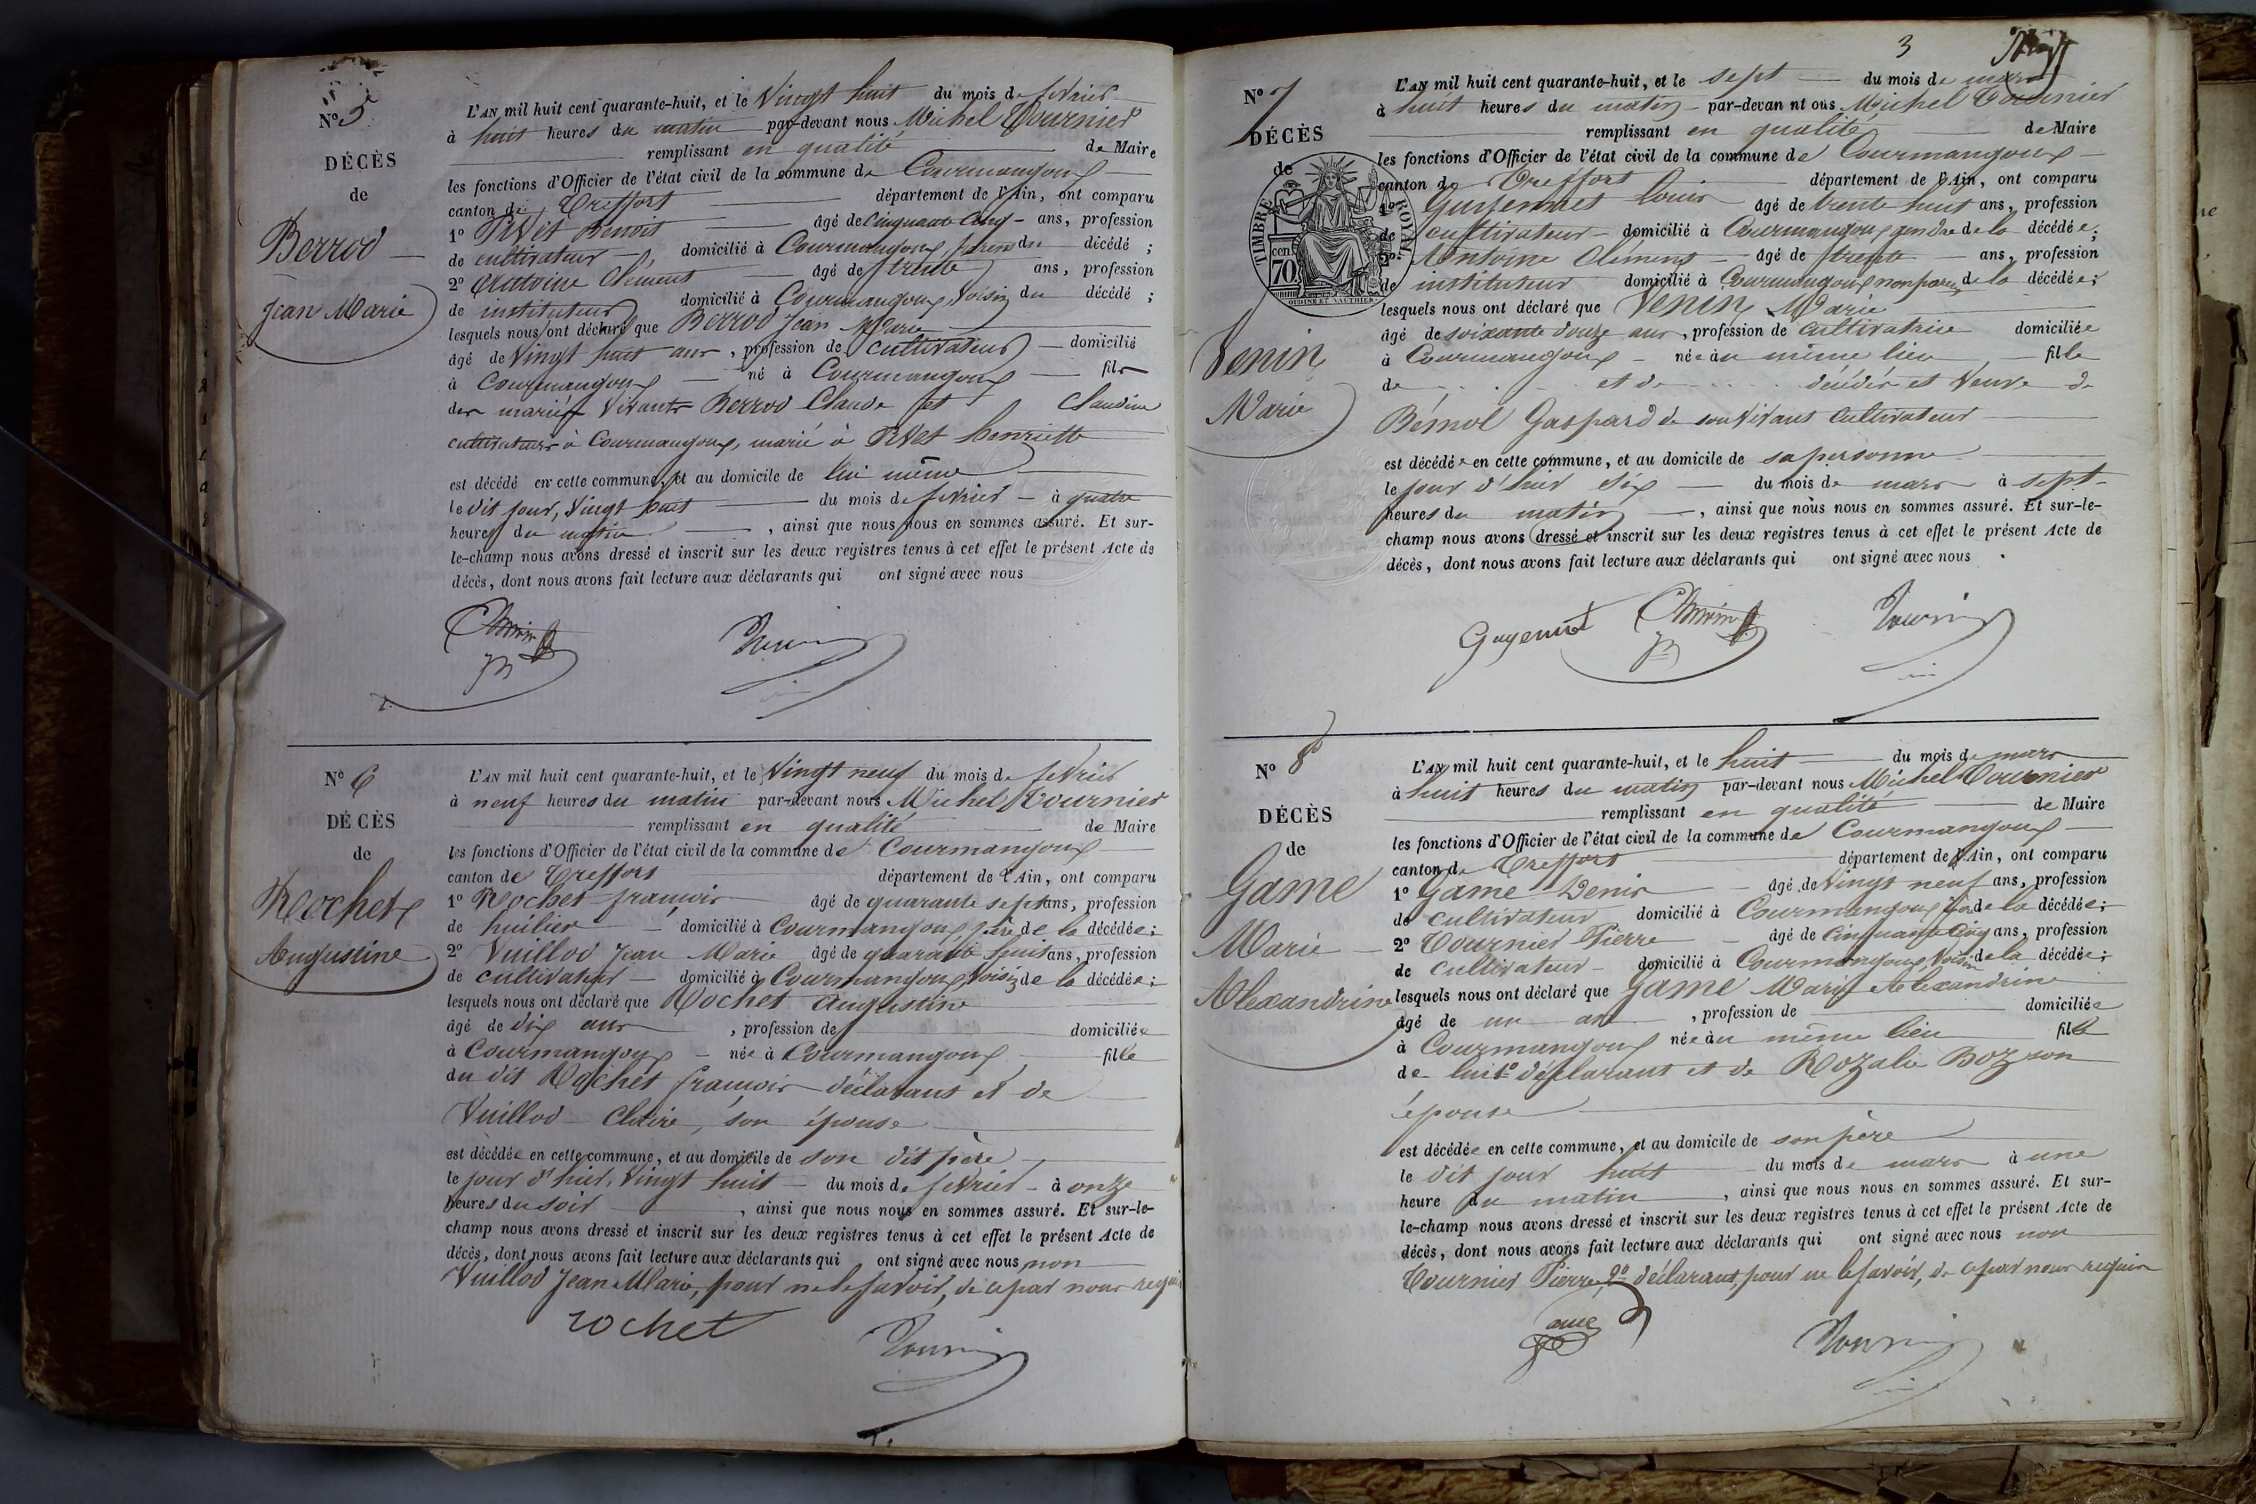 N° 5
DÉCÈS
de
Berrod
Jean Marie
L'AN mil huit cent quarante-huit, et le Vingt huit du mois de fevrier
à huit heures du matin par-devant nous Michel Tournier
remplissant en qualité de Maire
les fonctions d'Officier de l'état civil de la commune de Courmangoux
canton de Treffort département de l'Ain, ont comparu
1° Pivet Benoit âgé de Cinquante Cinq ans, profession
de cultivateur domicilié à Courmangoux du décédé ;
2° Antoine Clément âgé de trente ans, profession
de instituteur domicilié à Courmangoux Voisin du décédé ;
lesquels nous ont déclaré que Berrod Jean Marie
âgé de Vingt huit ans, profession de cultivateur domicilié
à Courmangoux né à Courmangoux fils
des mariés Vivants Berrod Claude et Claudine
cultivateurs à Courmangoux, marié à Pivet henriette
est décédé en cette commune, et au domicile de lui même
le dit jour, Vingt huit du mois de fevrier à quatre
heures du matin, ainsi que nous nous en sommes assuré. Et sur-
le-champ nous avons dressé et inscrit sur les deux registres tenus à cet effet le présent Acte de
décès, dont nous avons fait lecture aux déclarants qui ont signé avec nous
N° 6
DÉCÈS
de
Rochet
Augustine
L'AN mil huit cent quarante-huit, et le Vingt neuf du mois de fevrier
à neuf heures du matin par-devant nous Michel Tournier
remplissant en qualité de Maire
les fonctions d'Officier de l'état civil de la commune de Courmangoux
canton de Treffort département de l'Ain, ont comparu
1° Rochet françois âgé de quarante sept ans, profession
de huilier domicilié à Courmangoux père de la décédée ;
2° Vuillod Jean Marie âgé de quarante huit ans, profession
de cultivateur domicilié à Courmangoux Voisin de la décédée ;
lesquels nous ont déclaré que Rochet Augustine
âgé de dix ans, profession de domiciliée
à Courmangoux née à Courmangoux fille
du dit Rochet françois déclarant et de
Vuillod Claire, son épouse
est décédée en cette commune, et au domicile de son dit père
le jour d'hier, Vingt huit du mois de fevrier à onze
heures du soir, ainsi que nous nous en sommes assuré. Et sur-le-
champ nous avons dressé et inscrit sur les deux registres tenus à cet effet le présent Acte de
décès, dont nous avons fait lecture aux déclarants qui ont signé avec nous non
Vuillod Jean Marie, pour ne le savoir, de ce par nous requis
rochet
Tournier
3
N° 7
DÉCÈS
de
TIMBRE ROYAL
70 cen
Venin
Marie
L'AN mil huit cent quarante-huit, et le sept du mois de mars
à huit heures du matin par-devan nt ous Michel Tournier
remplissant en qualité de Maire
les fonctions d'Officier de l'état civil de la commune de Courmangoux
canton de Treffort département de l'Ain, ont comparu
1° Guyennet Louis âgé de trente huit ans, profession
de cultivateur domicilié à Courmangoux gendre de la décédée ;
2° Antoine Clémens âgé de trente ans, profession
de instituteur domicilié à Courmangoux non parent de la décédée ;
lesquels nous ont déclaré que Venin Marie
âgé de soixante douze ans, profession de cultivatrice domiciliée
à Courmangoux née au même lieu fille
de et de décédés et Veuve de
Bémol Gaspard de son Vivant cultivateur
est décédée en cette commune, et au domicile de sa personne
le jour d'hier six du mois de mars à sept
heures du matin, ainsi que nous nous en sommes assuré. Et sur-le-
champ nous avons dressé et inscrit sur les deux registres tenus à cet effet le présent Acte de
décès, dont nous avons fait lecture aux déclarants qui ont signé avec nous
Guyennet
Tournier
N° 8
DÉCÈS
de
Game
Marie
Alexandrine
L'AN mil huit cent quarante-huit, et le huit du mois de mars
à huit heures du matin par-devant nous Michel Tournier
remplissant en qualité de Maire
les fonctions d'Officier de l'état civil de la commune de Courmangoux
canton de Treffort département de l'Ain, ont comparu
1° Game Denis âgé de Vingt neuf ans, profession
de cultivateur domicilié à Courmangoux père de la décédée ;
2° Tournier Pierre âgé de Cinquante Cinq ans, profession
de cultivateur domicilié à Courmangoux, Voisin de la décédée ;
lesquels nous ont déclaré que Game Marie Alexandrine
âgé de un an, profession de domiciliée
à Courmangoux née au même lieu fille
de lui 1° déclarant et de Rozalie Bozon
épouse
est décédée en cette commune, et au domicile de son père
le dit jour huit du mois de mars à une
heure du matin, ainsi que nous nous en sommes assuré. Et sur-
le-champ nous avons dressé et inscrit sur les deux registres tenus à cet effet le présent Acte de
décès, dont nous avons fait lecture aux déclarants qui ont signé avec nous non
Tournier Pierre, 2° déclarant, pour ne le savoir, de ce par nous requis